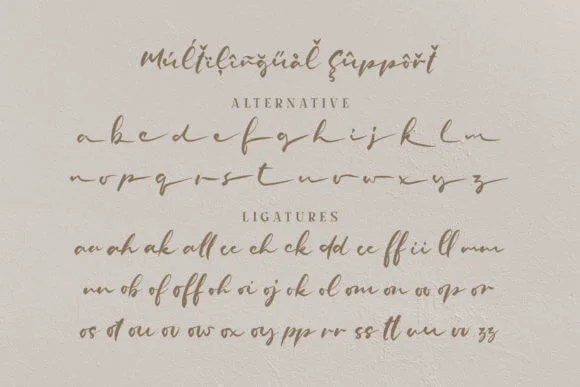 Múĺťíļîñğűåľ Şûppôřť
ALTERNATIVE
a b c d e f g h i j k l m
n o p q r s t u v w x y z
LIGATURES
aa ah ak all cc ch ck dd ee ff ii ll mm
nn ob of off oh oi oj ok ol om on oo op or
os ot ou ov ow ox oy pp rr ss tt uu vv zz